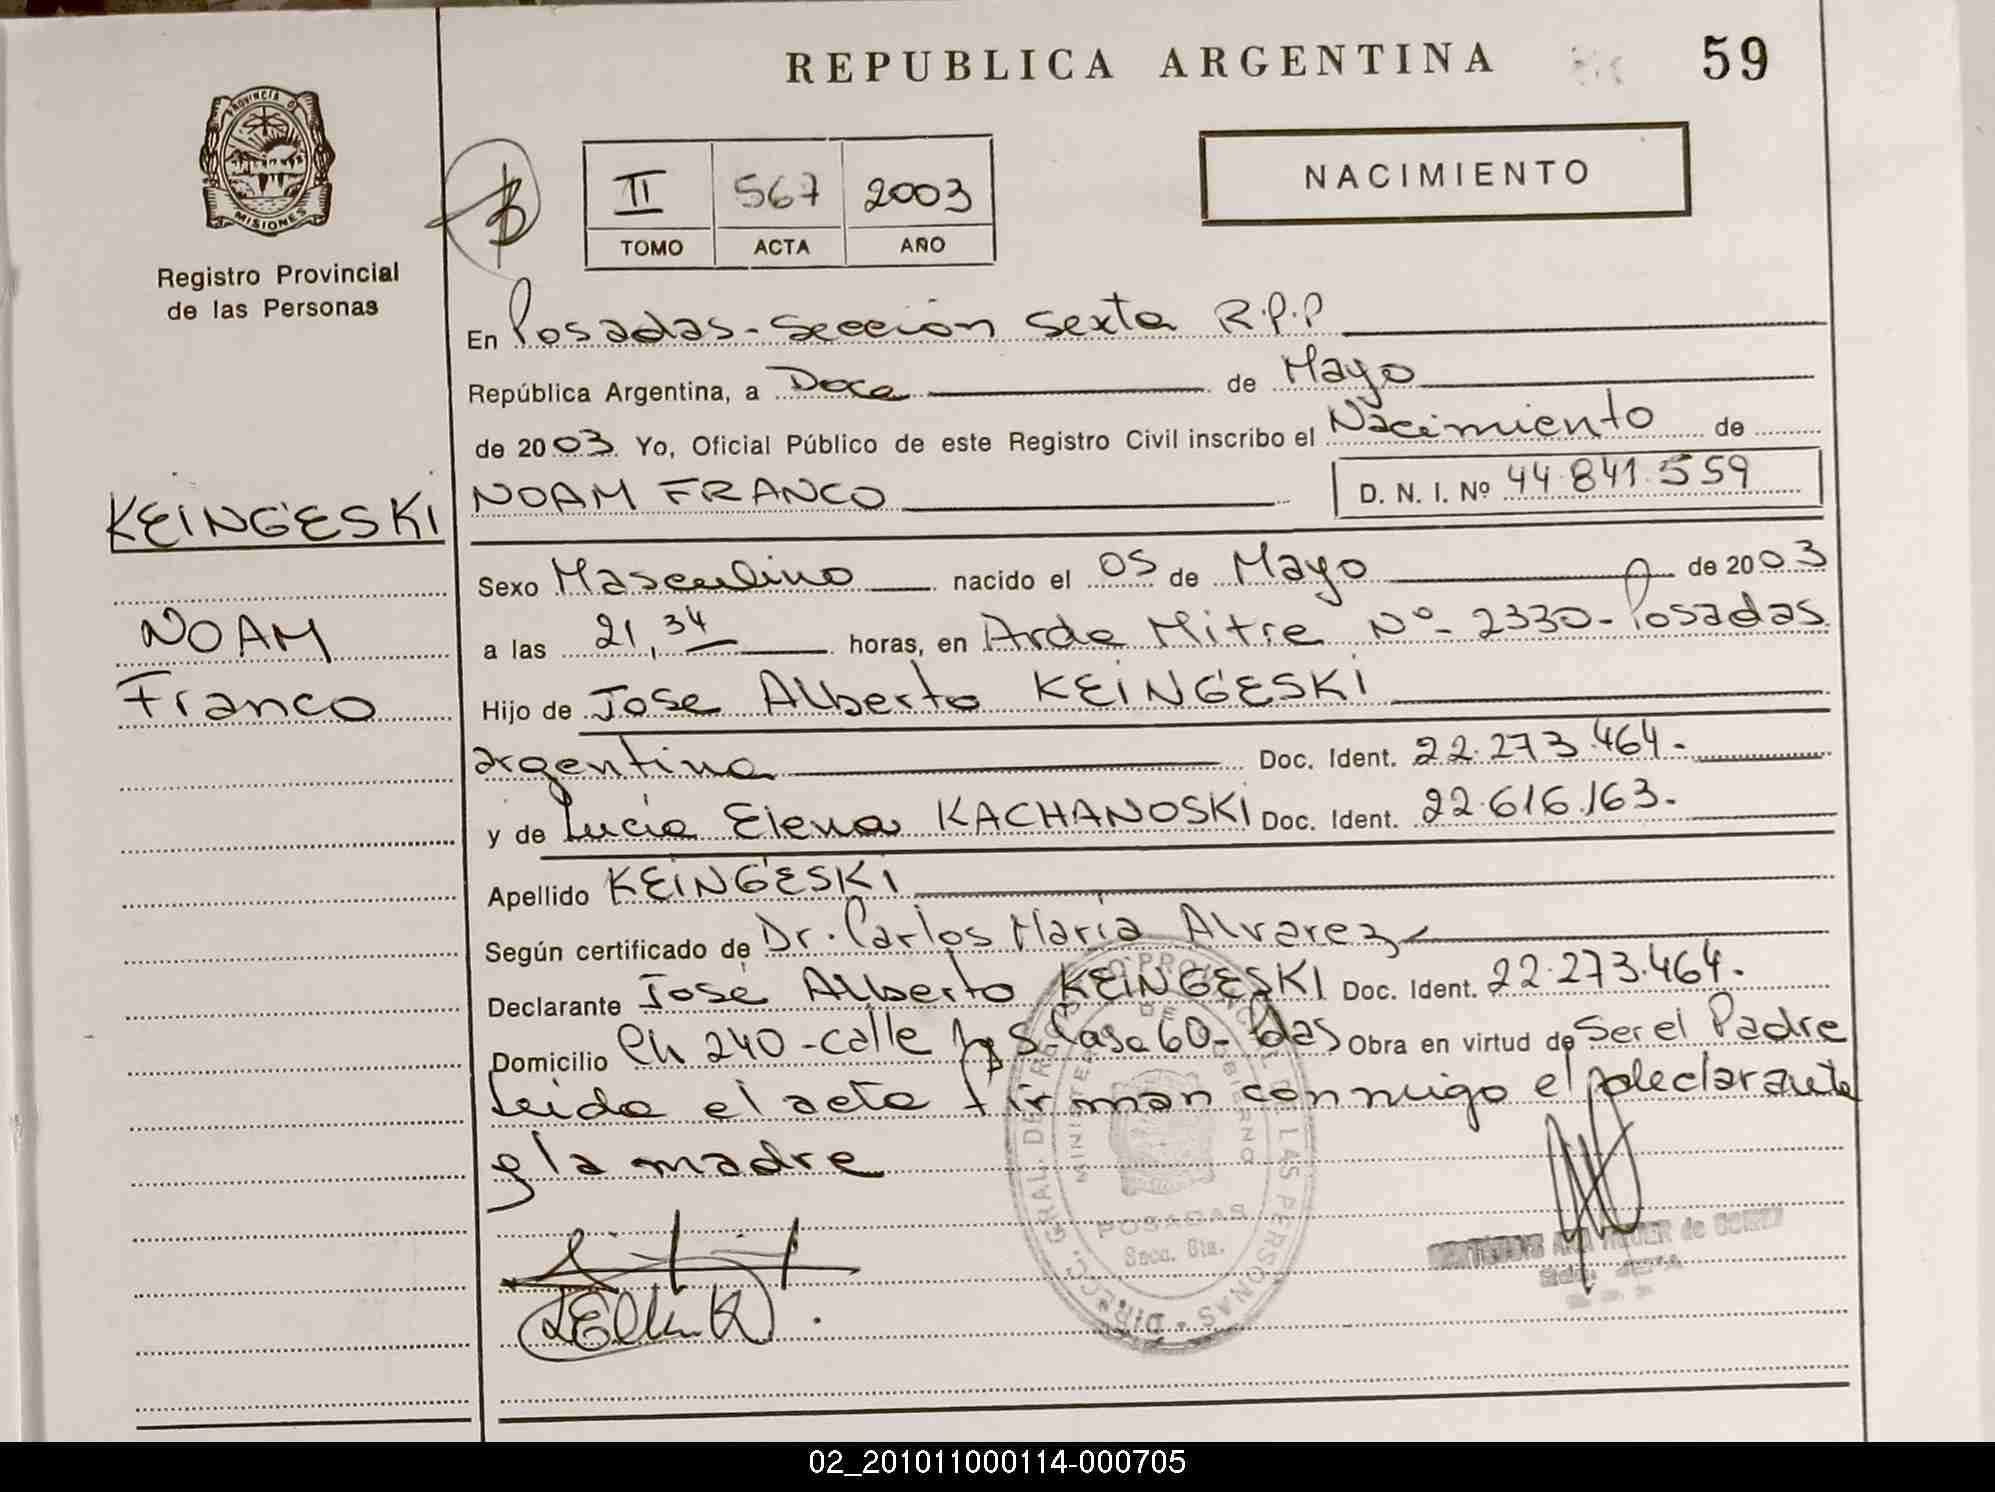 REPUBLICA ARGENTINA
59
PROVINCIA DE
MISIONES
Registro Provincial
de las Personas
II 567 2003
TOMO ACTA AÑO
NACIMIENTO
En Posadas-Sección Sexta R.P.P
República Argentina, a Doce de Mayo
de 2003. Yo, Oficial Público de este Registro Civil inscribo el Nacimiento de
NOAM FRANCO D. N. I. Nº 44.841.559
KEINGESKI
NOAM
Franco
Sexo Masculino nacido el 05 de Mayo de 2003
a las 21,34 horas, en Avda Mitre Nº- 2330- Posadas
Hijo de Jose Alberto KEINGESKI
argentina Doc. Ident. 22.273.464.
y de Lucia Elena KACHANOSKI Doc. Ident. 22.616.163.
Apellido KEINGESKI
Según certificado de Dr. Carlos María Alvarez
Declarante José Alberto KEINGESKI Doc. Ident. 22.273.464.
Domicilio Ch 240-calle Casa 60- Pdas Obra en virtud de Ser el Padre
Leida el acta firman conmigo el declarante
y la madre
DIRECC. GRAL. DE REGISTRO PROVINCIAL DE LAS PERSONAS
MINISTERIO DE GOBIERNO
POSADAS
Secc. 6ta.
de GOMEZ
02_201011000114-000705